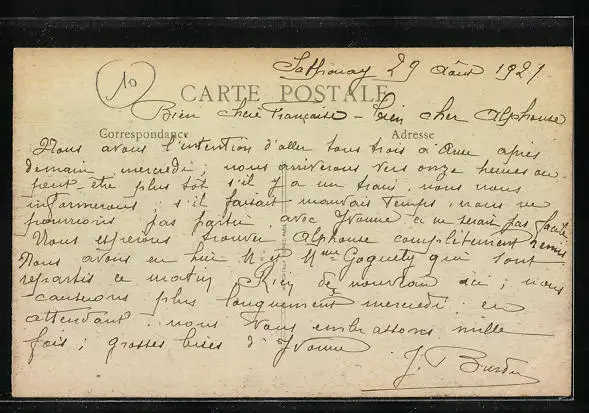 Sathonay 29 Août 1921
10
CARTE POSTALE
Bien chère Françoise - bien cher Alphonse
Correspondance
Adresse
Nous avons l'intention d'aller tous trois à après
demain, mercredi; nous arriverons vers onze heures ou
peut-être plus tôt s'il y a un train, nous nous
informerons; s'il faisait mauvais temps, nous ne
pourrions pas partir avec Yvonne ce ne serait pas facile
Nous espérons trouver Alphonse complètement remis
Nous avons eu hier M et Mme Goguety qui sont
repartis ce matin Rien de nouveau ici; nous
causerons plus longuement mercredi; en
attendant nous vous embrassons mille
fois; grosses bises d'Yvonne
J. Burdin